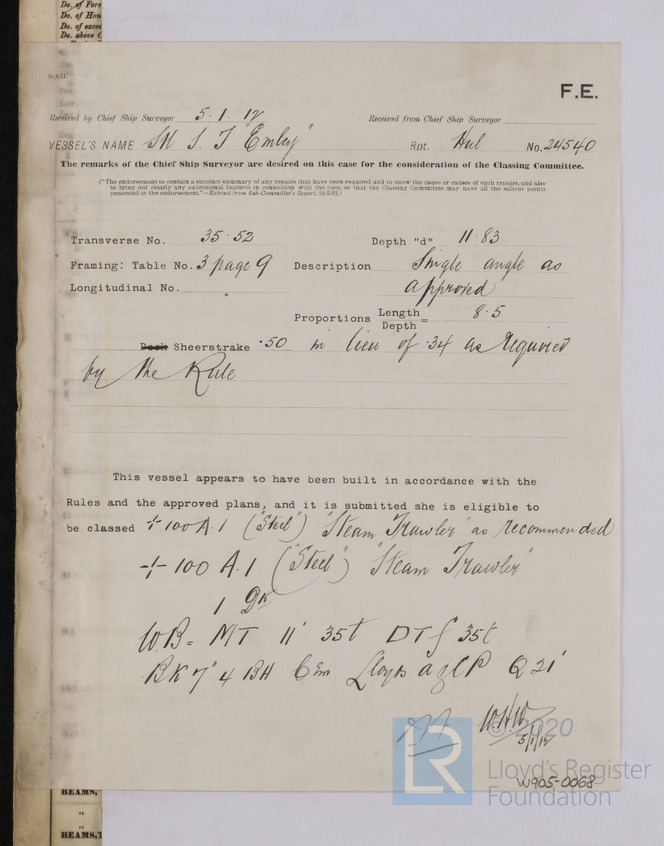 Do. of Fore
Do. of Hou
Do. of exces
Do. above
F.E.
Received by Chief Ship Surveyor 5.1.12 Received from Chief Ship Surveyor
VESSEL'S NAME "Emley" Rot. Hul No. 24540
The remarks of the Chief Ship Surveyor are desired on this case for the consideration of the Classing Committee.
("The endorsement to contain a succinct summary of any repairs that have been required and to show the cause or causes of such repairs, and also
to bring out clearly any exceptional features in connection with the case, so that the Classing Committee may have all the salient points
presented in the endorsement."—Extract from Sub-Committee's Report,
Transverse No. 35.52 Depth "d" 11.83
Framing: Table No. 3 page 9 Description Single angle as
Longitudinal No. approved
Proportions Length/Depth = 8.5
Deck Sheerstrake .50 in lieu of .34 as required
by the Rule
This vessel appears to have been built in accordance with the
Rules and the approved plans, and it is submitted she is eligible to
be classed +100A.1 (Steel) "Steam Trawler" as recommended
+ 100 A.1 (Steel) "Steam Trawler"
1 Dk
WB= MT 11' 35t DTf 35t
BK 7" 4 BH Cem Lloyds a&CP
WHW
5/1/12
© 2020
LR
Lloyd's Register
Foundation
W905-0068
BEAMS,
"
"
BEAMS,